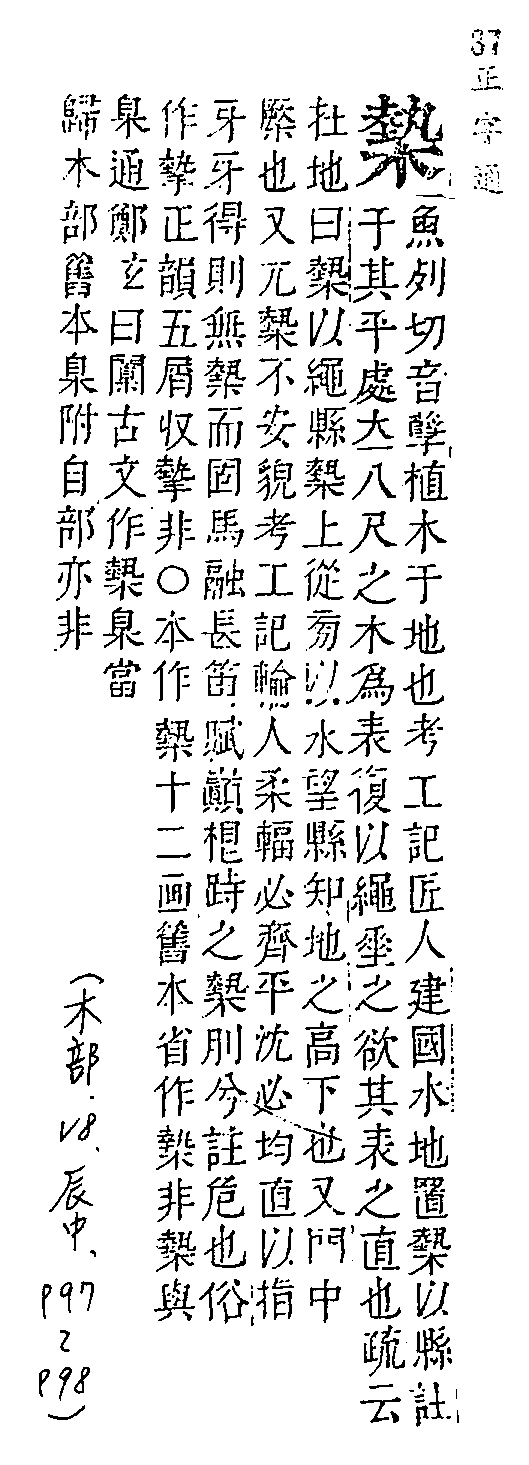 37正字通
槷魚列切音孼植木于地也考工記匠人建國水地置槷以縣註
于其平處大八尺之木爲表復以繩垂之欲其表之直也疏云
柱地曰槷以繩縣槷上從旁以水望縣知地之高下也又門中
橜也又兀槷不安貌考工記輪人柔輻必齊平沈必均直以指
牙牙得則無槷而固馬融長笛賦巓根跱之槷刖兮註危也俗
作摯正韻五屑収摯非○本作槷十二画舊本省作槷非槷與
臬通鄭玄曰闑古文作槷臬當
歸木部舊本臬附自部亦非
(木部.V8、辰中、P97~P98)